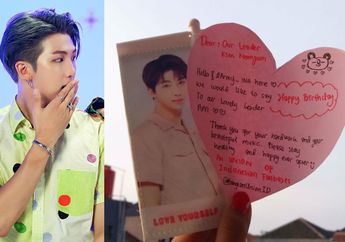 Dear : Our Leader
Kim Namjoon
Hello! Army.. we here to
we would like to say
Happy Birthday
To our Lovely Leader
Thank you for your hardwork and your
beautiful music. Please stay
healthy and happy ever after
An UNION OF
Indonesian Fanboys
LOVE YOURSELF